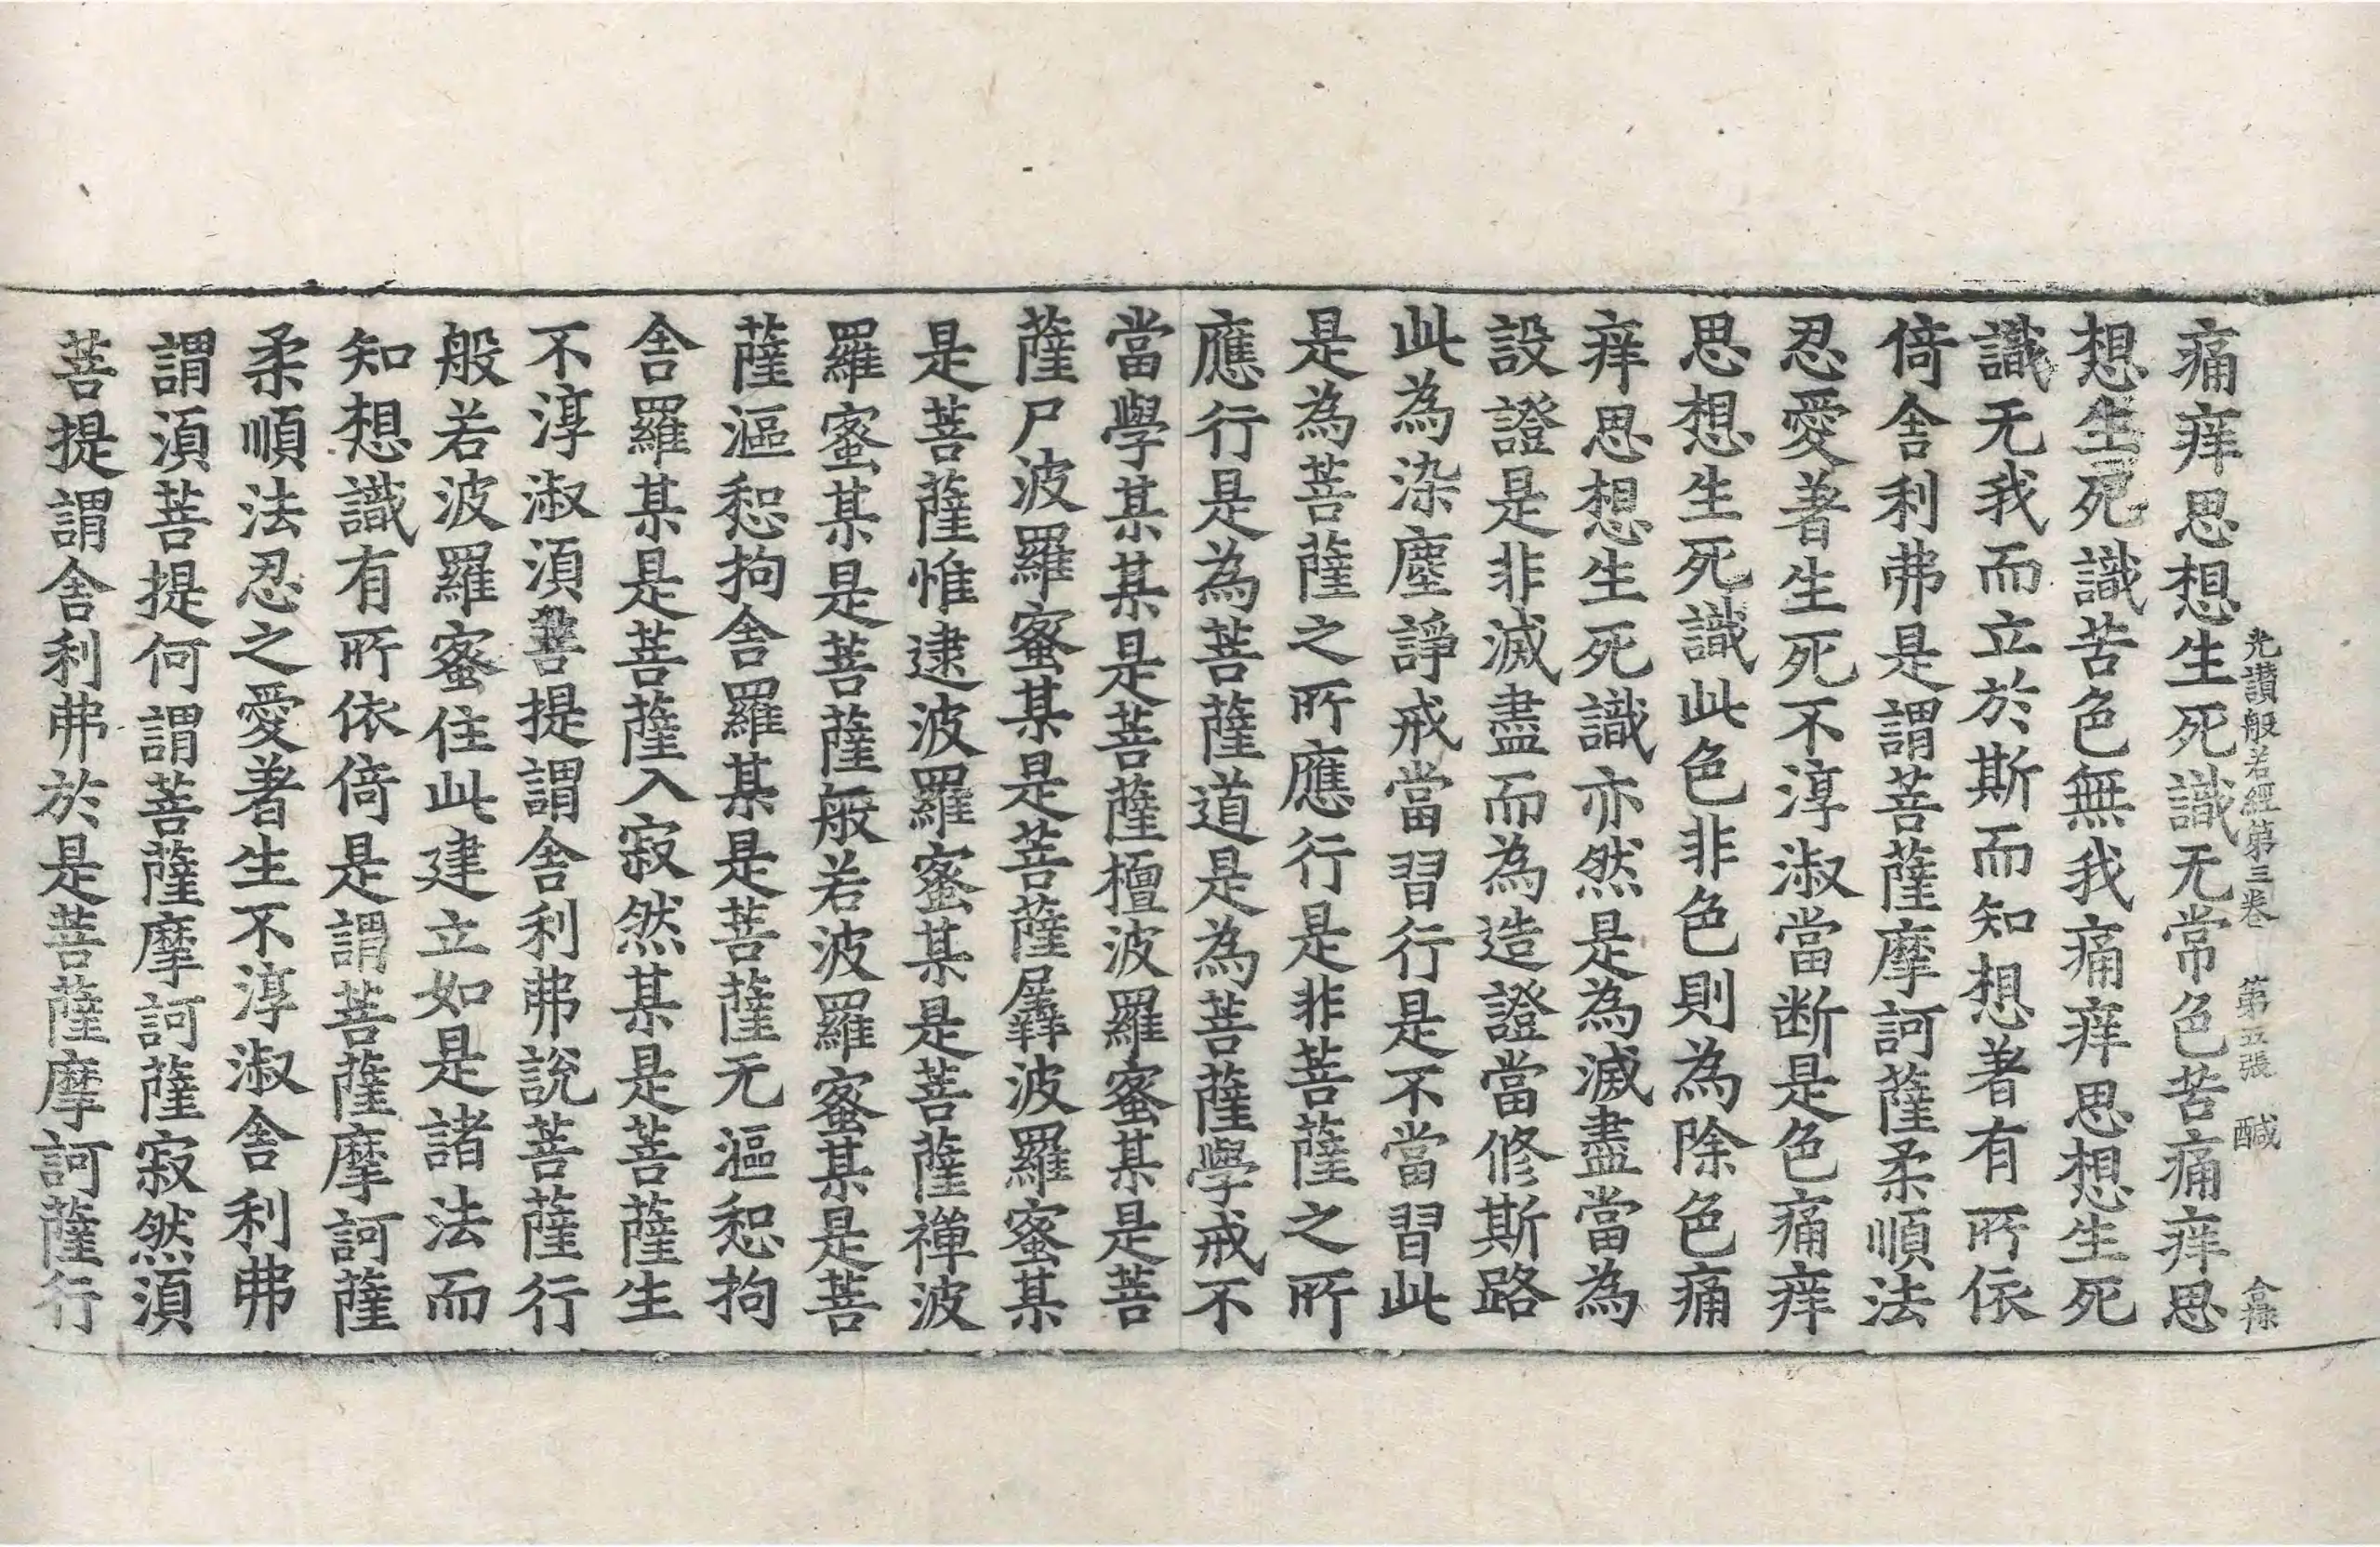 光讃般若經第三卷 第五張 醎
痛痒思想生死識无常色苦痛痒思
想生死識苦色無我痛痒思想生死
識无我而立於斯而知想著有所依
倚舎利弗是謂菩薩摩訶薩柔順法
忍愛著生死不淳淑當断是色痛痒
思想生死識此色非色則為除色痛
痒思想生死識亦然是為滅盡當為
設證是非滅盡而為造證當修斯路
此為染塵諍戒當習行是不當習此
是為菩薩之所應行是非菩薩之所
應行是為菩薩道是為菩薩學戒不
當學某某是菩薩檀波羅蜜某是菩
薩尸波羅蜜某是菩薩羼波羅蜜某
是菩薩惟逮波羅蜜某是菩薩禅波
羅蜜某是菩薩般若波羅蜜某是菩
薩漚惒拘舎羅某是菩薩无漚惒拘
舎羅某是菩薩入寂然某是菩薩生
不淳淑須菩提謂舎利弗說菩薩行
般若波羅蜜住此建立如是諸法而
知想識有所依倚是謂菩薩摩訶薩
柔順法忍之愛著生不淳淑舎利弗
謂須菩提何謂菩薩摩訶薩寂然須
菩提謂舎利弗於是菩薩摩訶薩行